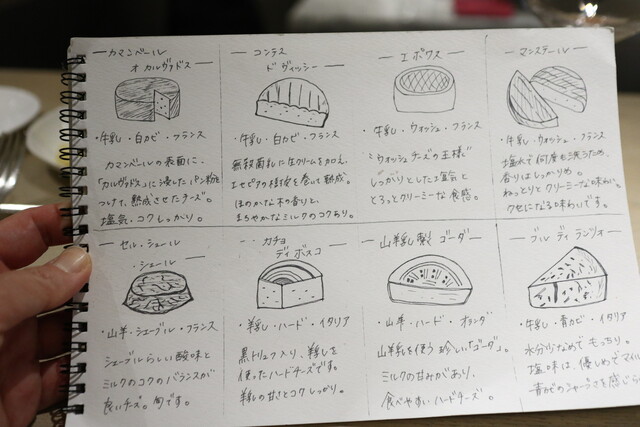 カマンベール
オ カルヴァドス
・牛乳・白カビ・フランス
カマンベールの表面に、
「カルヴァドス」に浸したパン粉を
つけて、熟成させたチーズ。
塩気・コクしっかり。
コンテス
ド ヴィッシー
・牛乳・白カビ・フランス
無殺菌乳に生クリームを加え、
エピセアの樹皮を巻いて熟成。
ほのかな木の香りと、
まろやかなミルクのコクあり。
エポワス
・牛乳・ウォッシュ・フランス
"ウォッシュチーズの王様"
しっかりとした塩気と
とろっとクリーミーな食感。
マンステール
・牛乳・ウォッシュ・フランス
塩水で何度も洗うため、
香りはしっかりめ。
ねっとりとクリーミーな味わい。
クセになる味わいです。
セル・シュール
・シェール
・山羊・シェーブル・フランス
シェーブルらしい酸味と
ミルクのコクのバランスが
良いチーズ。旬です。
カチョ
ディ ボスコ
・羊乳・ハード・イタリア
黒トリュフ入り、羊乳を
使ったハードチーズです。
羊乳の甘さとコクしっかり。
山羊乳製 ゴーダー
・山羊・ハード・オランダ
山羊乳を使う珍しい「ゴーダ」。
ミルクの甘みがあり、
食べやすいハードチーズ。
ブル ディ ランツォ
・牛乳・青カビ・イタリア
水分少なめでもっちり。
塩味は、優しめでマイル
青カビのシャープさを感じら